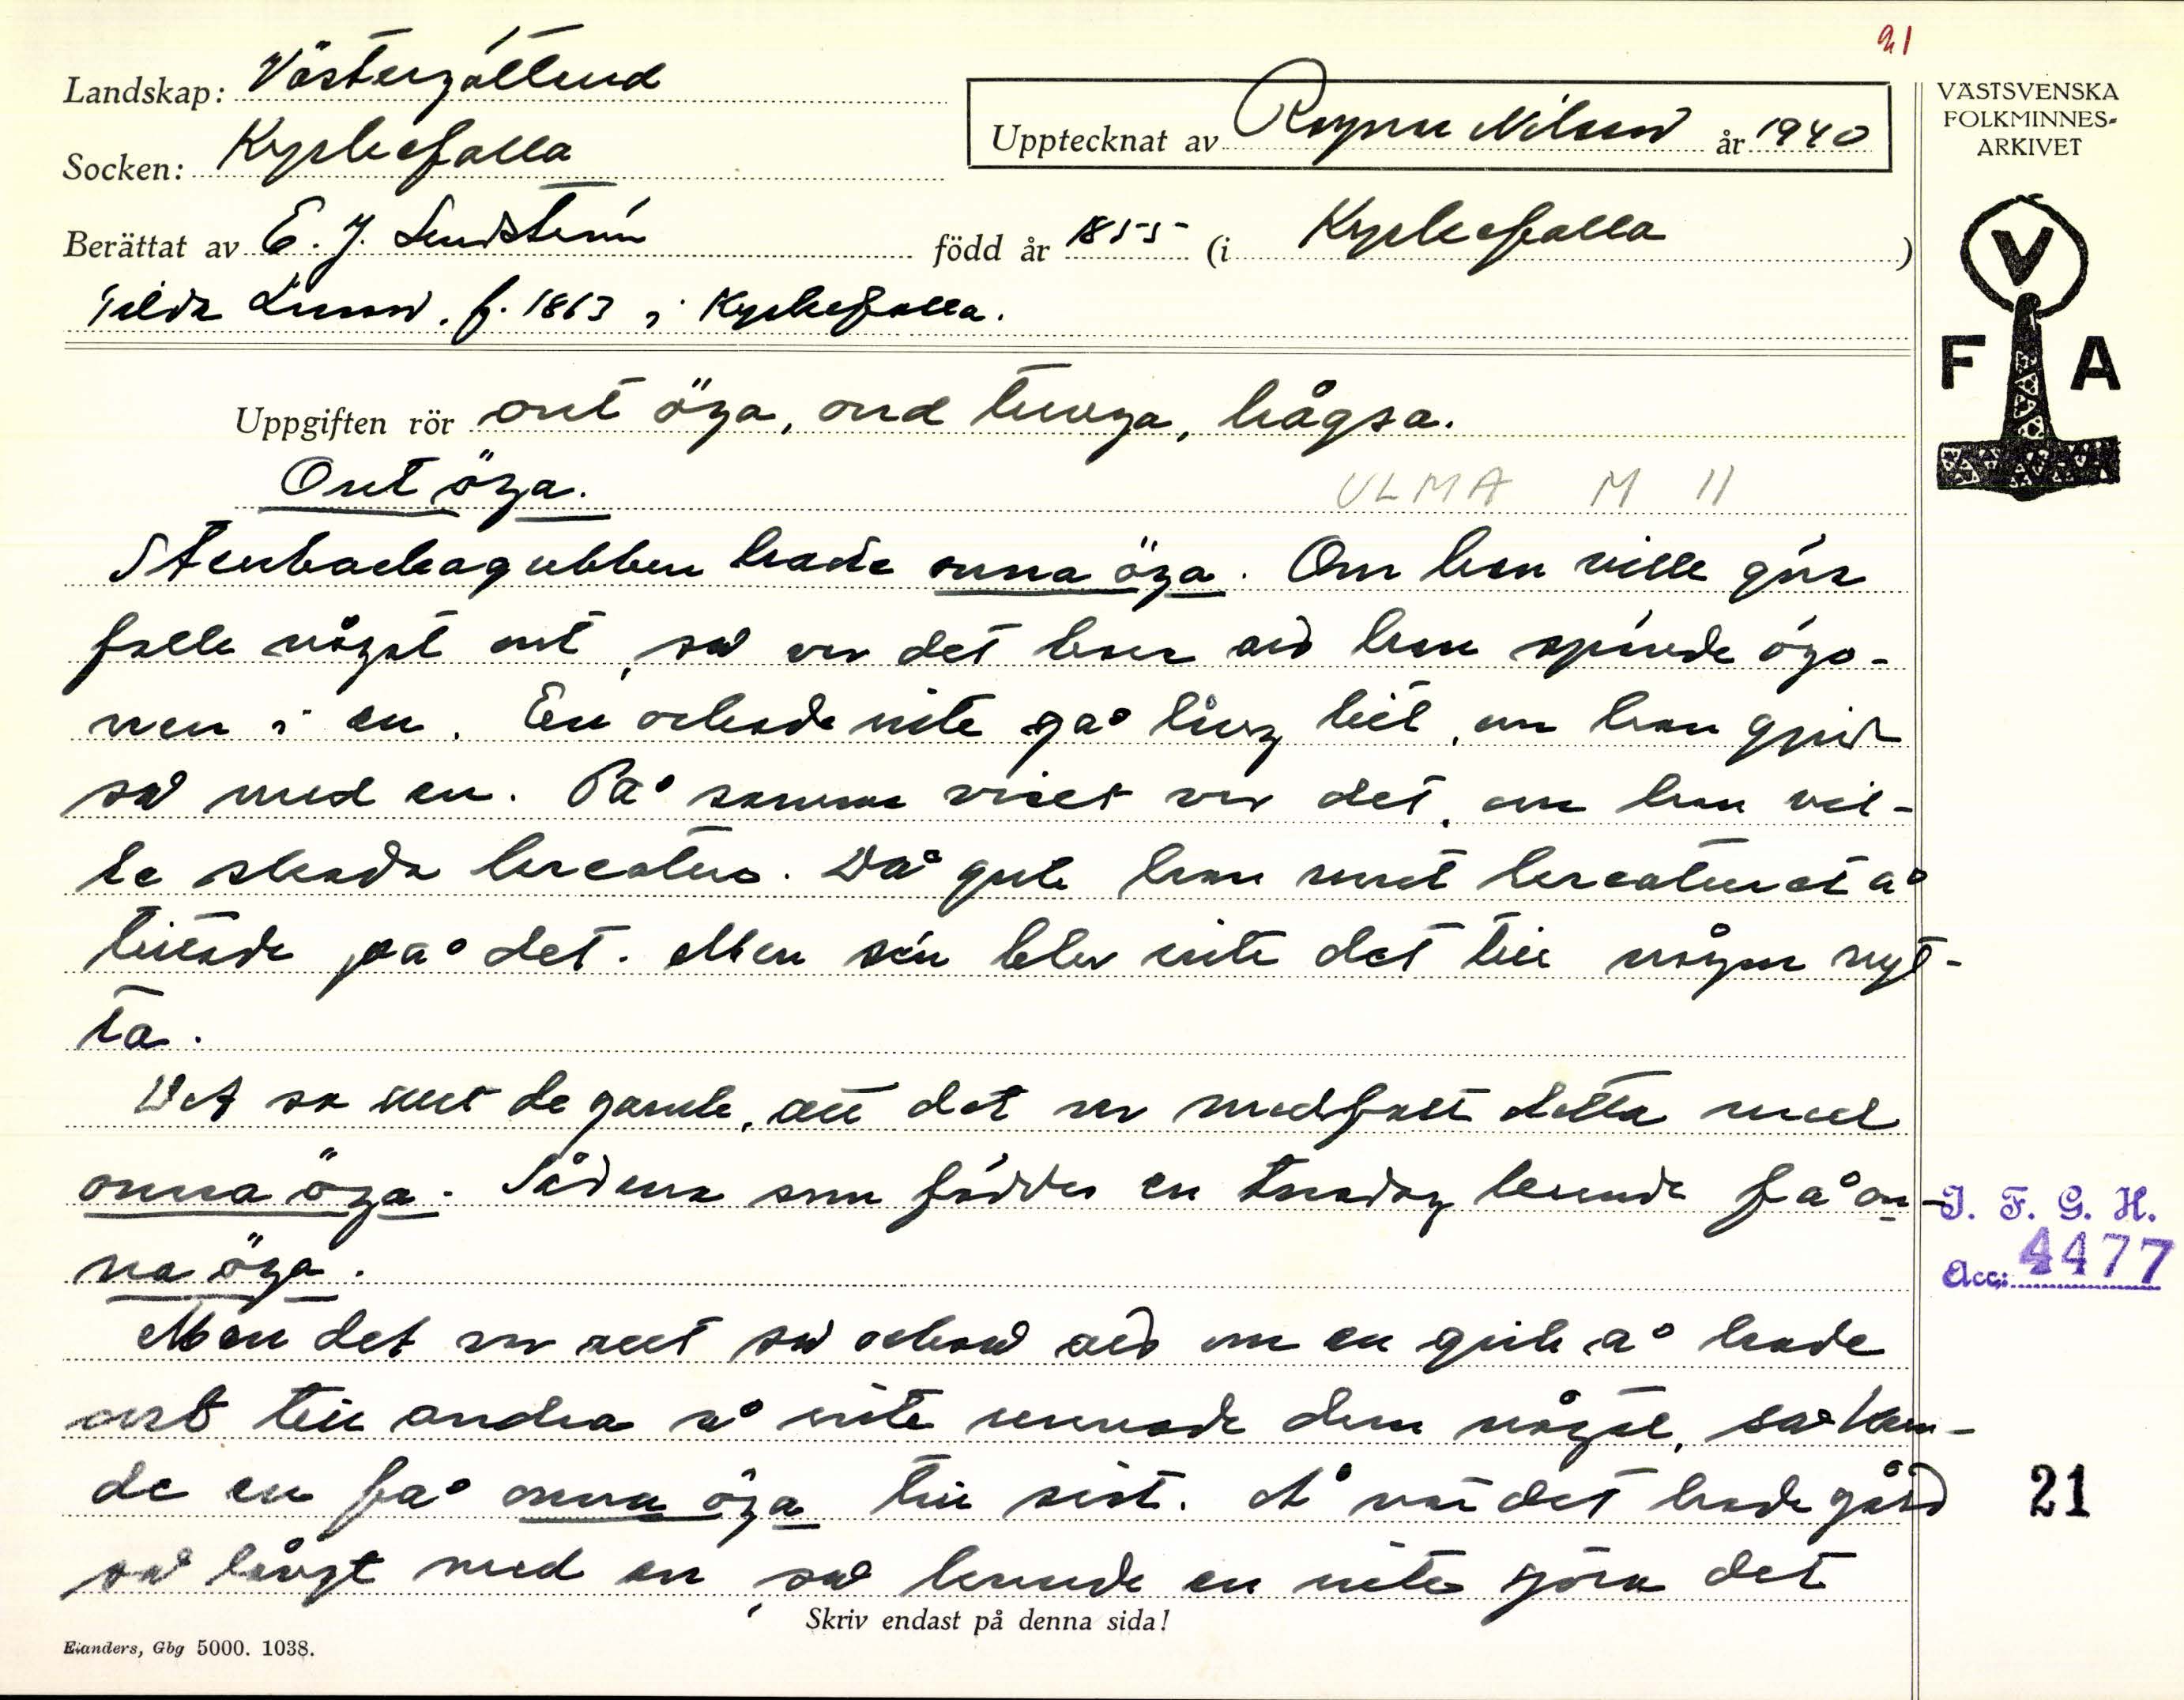 21
Landskap: Västergötland
Socken: Kyrkefalla
Upptecknat av Ragnar Nilsson år 1940
VÄSTSVENSKA
FOLKMINNES-
ARKIVET
Berättat av E. J. Lindstein född år 1855 (i Kyrkefalla)
Tilda Larsson. f. 1863 i Kyrkefalla.
V
F A
Uppgiften rör ont öga, ond tunga, hågsa.
Ont öga.
ULMA M 11
Stenbackagubben hade onna öga. Om han ville göra
folk något ont, så var det bara ad han spände ögo-
nen i en. En orkade inte gå läng till, om han gjord
så med en. På samma viset var det, om han vil-
le skada kreaturs. Då gick han runt kreaturet å
tittade på det. Men sen blev inte det till någon nyt-
ta.
Det sa allt de gamle, att det var medfött detta med
onna öga. Sådana som föddes en torsdag kunde få on-
na öga.
Men det var allt så också ad om en gick å hade
ont till andra å inte unnade dem något, så kun-
de en få onna öga till sist. Å när det hade gård
så långt med en, så kunde en inte göra det
I. F. G. H.
Acc: 4477
21
Skriv endast på denna sida!
Elanders, Gbg 5000. 1038.